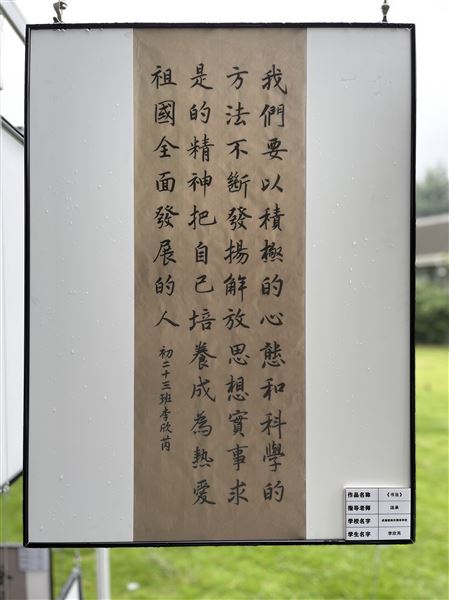 我們要以積極的心態和科學的
方法不斷發揚解放思想實事求
是的精神把自己培養成為熱愛
祖國全面發展的人
初二十三班李欣芮
作品名称 《书法》
指导老师
学校名字
学生名字 李欣芮